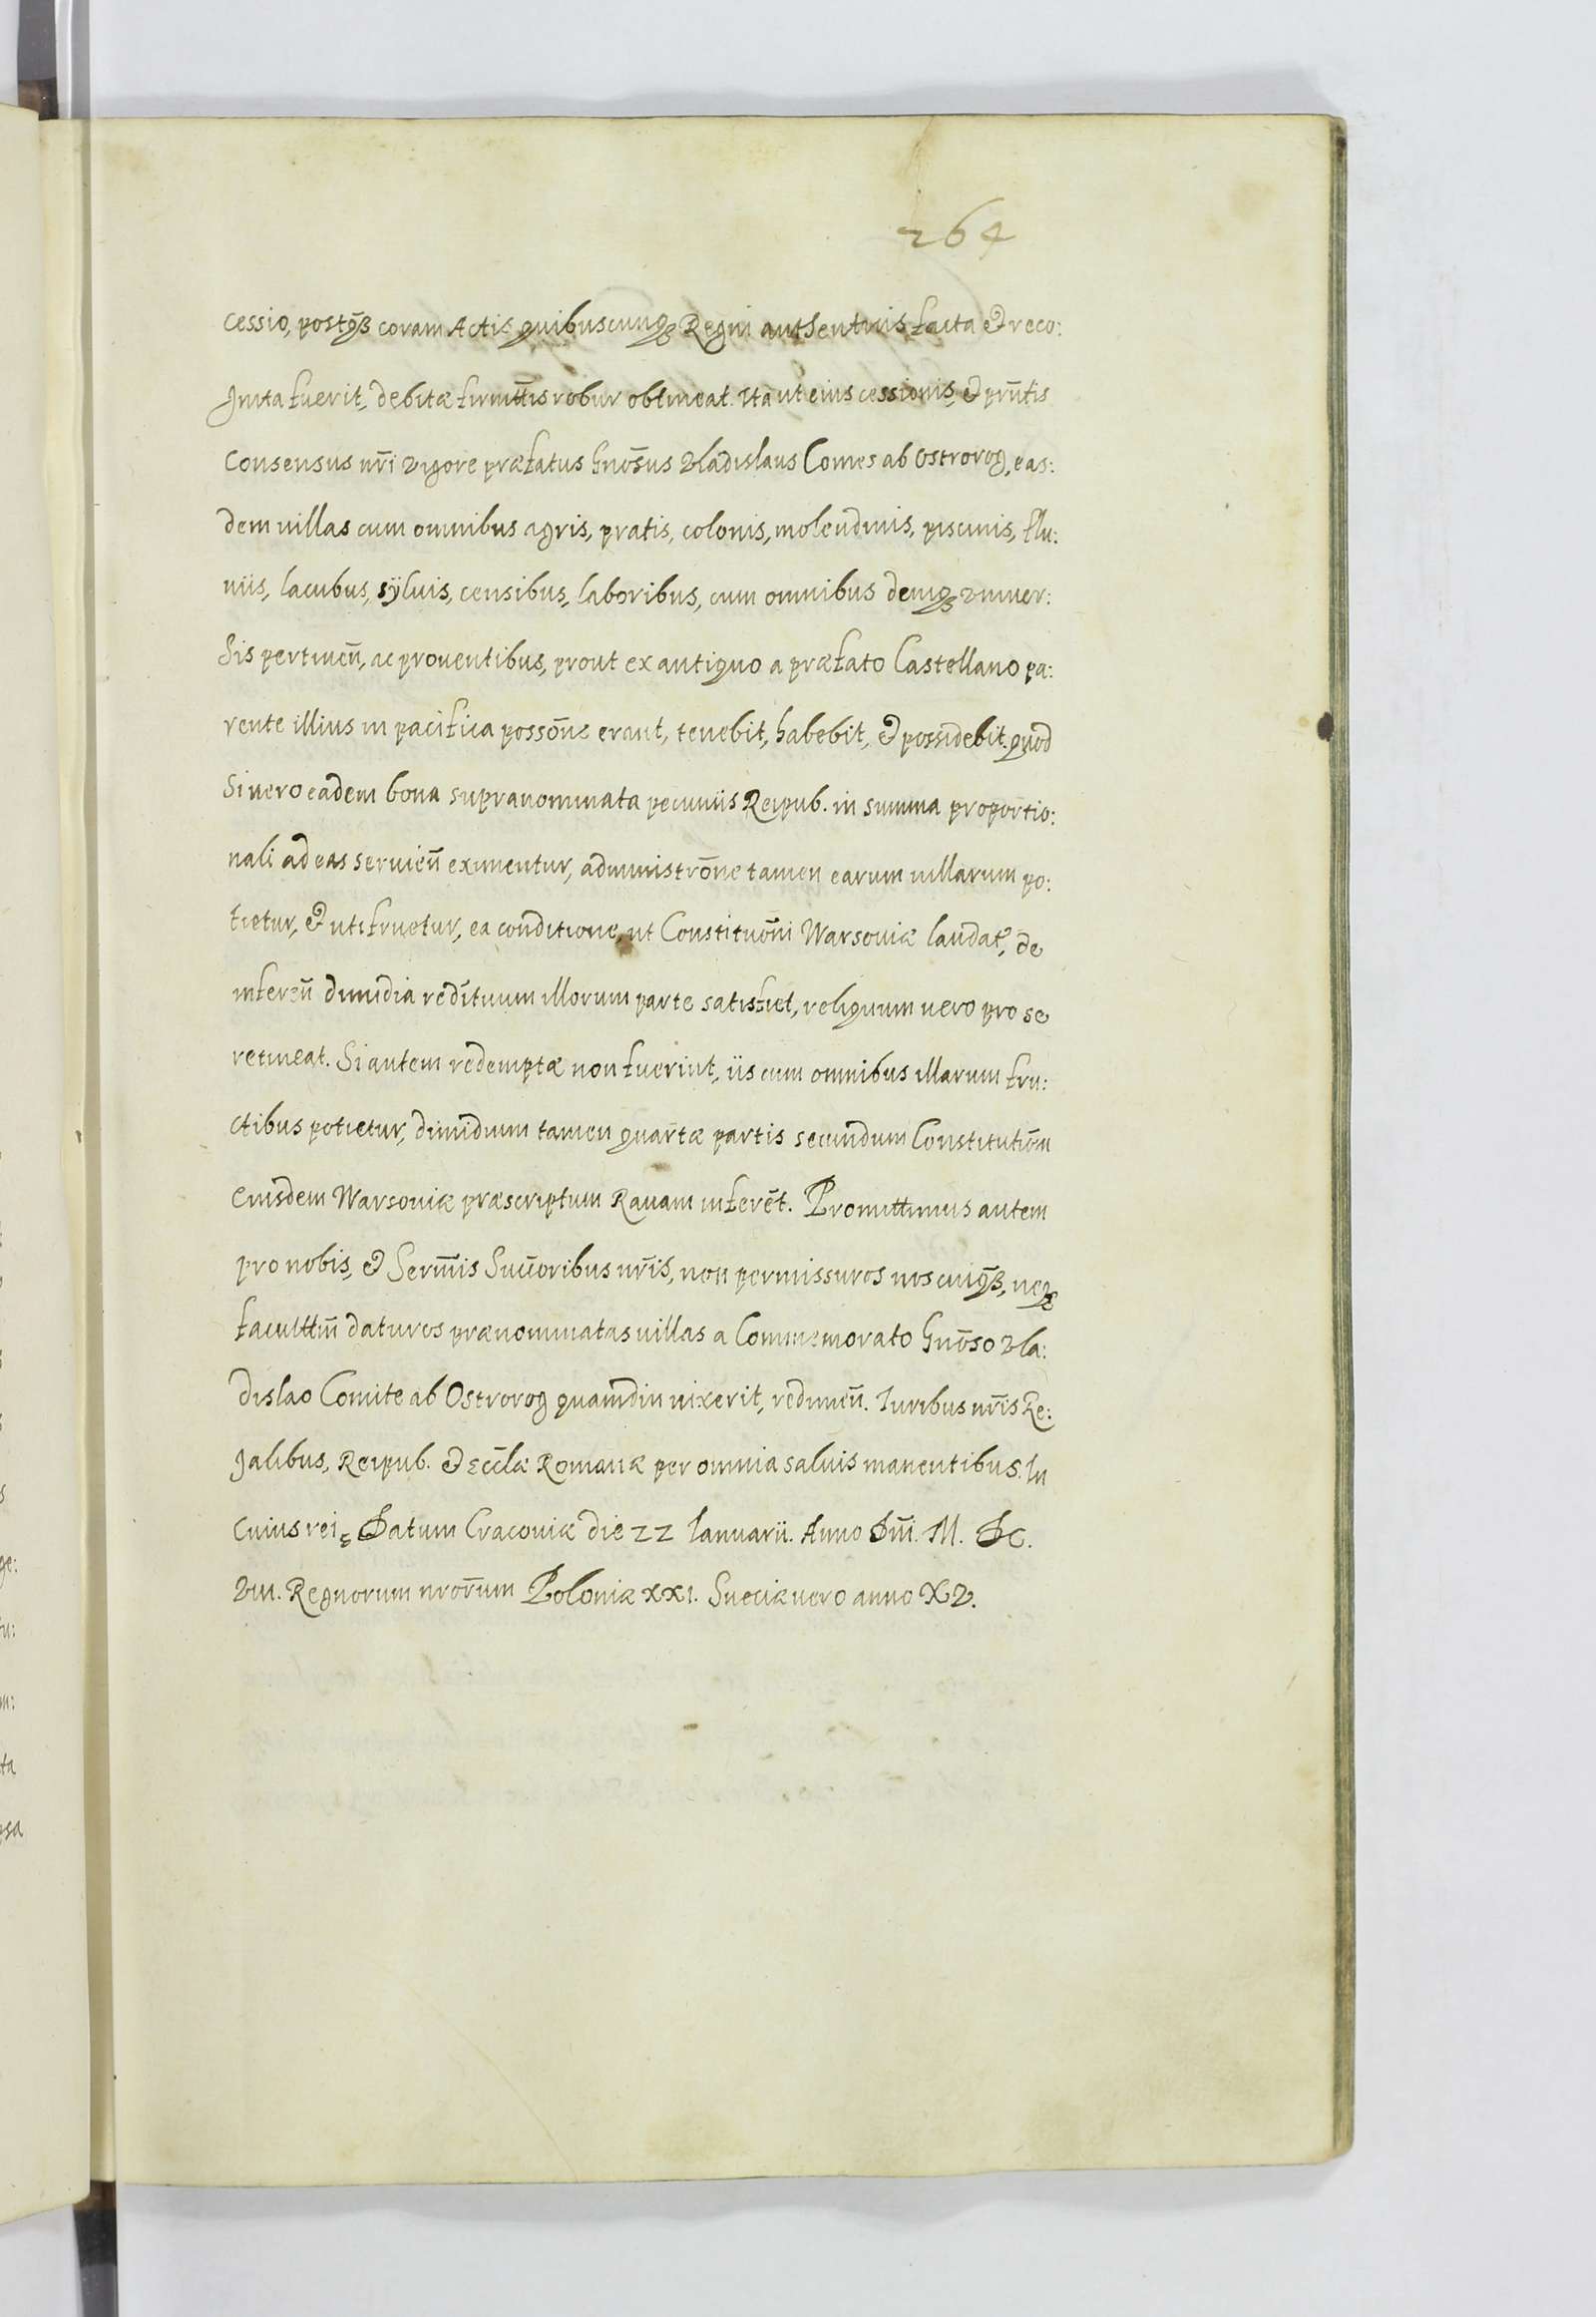 264
cessio, postqȝ coram Actis quibuscunqȝ Regni authenticis facta & reco:
gnita fuerit, debitæ firmittis robur obtineat. Ita ut eius cessionis, & prn̄tis
Consensus nr̄i vigore præfatus Gnōsus Vladislaus Comes ab Ostrorog, eas:
dem villas cum omnibus agris, pratis, colonis, molendinis, piscinis, flu:
uiis, lacubus, sÿluis, censibus, laboribus, cum omnibus deniqȝ vniuer:
sis pertineñ, ac prouentibus, prout ex antiquo a præfato Castellano pa:
rente illius in pacifica possōne erant, tenebit, habebit, & possidebit. quod
si uero eadem bona supranominata pecuniis Reipub. in summa proportio:
nali ad eas servieñ eximentur, administrōne tamen earum uillarum po:
tietur, & utifruetur, ea conditione, ut Constituōni Warsouiæ laudatæ, de
inferēn dimidia redituum illorum parte satisfiet, reliquum uero pro se
retineat. Si autem redemptæ non fuerint, iis cum omnibus illarum fru:
ctibus potietur, dimidium tamen quartæ partis secundum Constitutiōm
eiusdem Warsouiæ præscriptum Rauam inferēt. Promittimus autem
pro nobis, & Serm̄is Succ̄oribus nr̄is, non permissuros nos cuiqȝ, neqȝ
faculttm̄ daturos prænominatas uillas a Commemorato Gnōso Vla:
dislao Comite ab Ostrorog quamdiu uixerit, redimeñ. Iuribus nr̄is Re:
galibus, Reipub. & Eccl̄æ Romanæ per omnia saluis manentibus. In
cuius rei Datum Cracouiæ die 22 Ianuarii. Anno Dn̄i. M. DC.
VIII. Regnorum nrōrum Poloniæ XXI. Sueciæ uero anno XV.